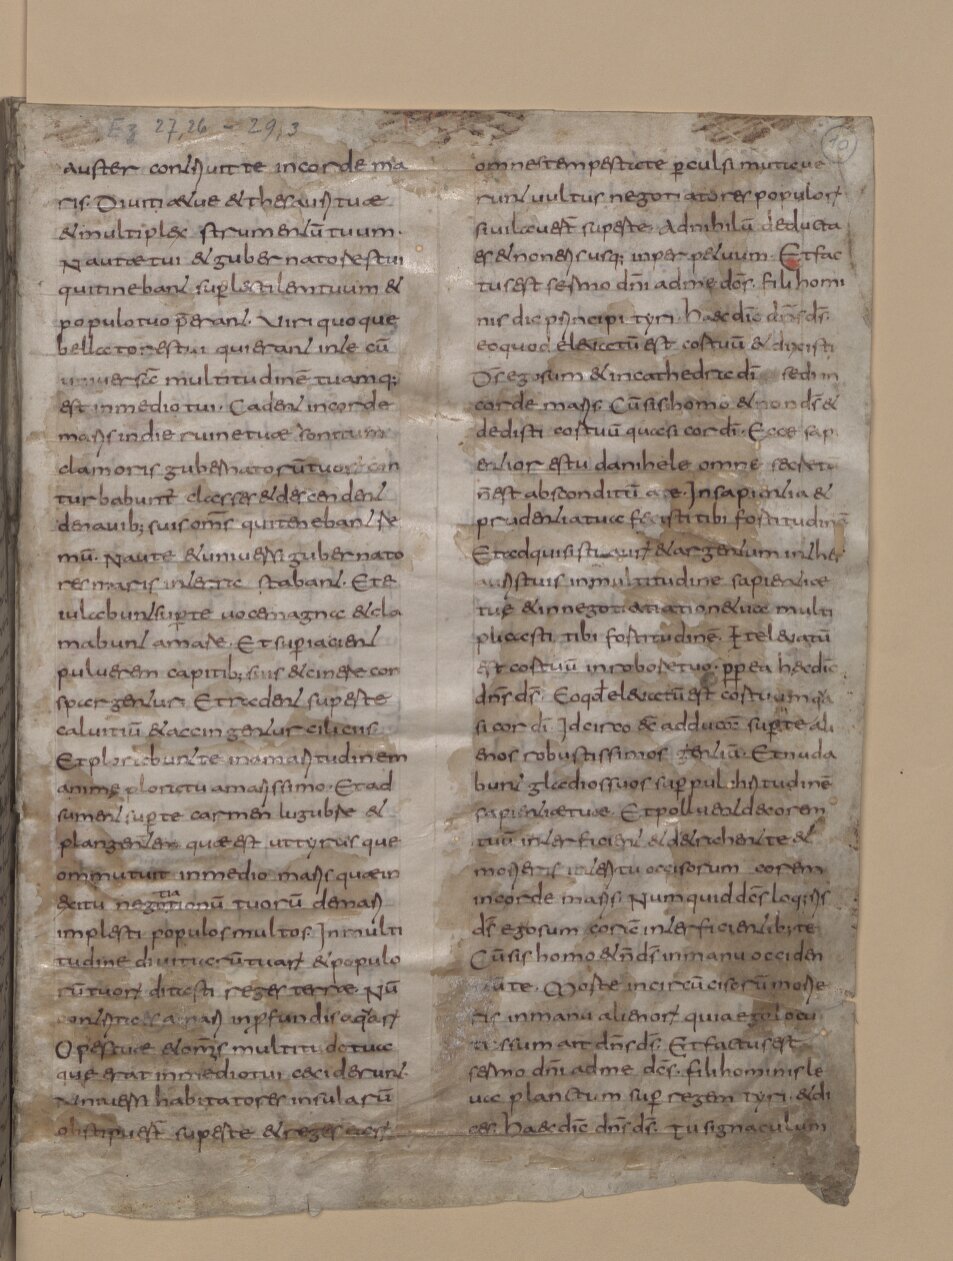 Ez 27,26 – 29,3
10
auster contriuit te in corde ma
ris. Diuitiae tue & thesauri tuae
& multiplex strumentū tuum.
Nautae tui & gubernatores tui
qui tenebant suplectilem tuum &
populo tuo p̄erant. Viri quoque
bellatores tui qui erant in te cū
uniuersa multitudinē tuamq;
est in medio tui. Cadent in corde
maris in die ruine tuae sonitum
clamoris gubernatorū tuor con
turbabunt̄ classes & descendent
de nauib; suis om̄s qui tenebant re
mū. Naute & uniuersi gubernato
res maris in terra stabant. Et e
iulabunt sup te uoce magna & cla
mabunt amare. Et superiacient
puluerem capitib; suis & cinere con
spargentur. Et radent sup este
caluitiū & accingentur ciliciis
Et plorabunt te in amaritudinem
anime ploratu amarissimo. Et ad
sument sup te carmen lugubre &
plangent en quae est ut tyrus que
ommutuit in medio maris quae in
exitu negotiationū tuorū de mari
implesti populos multos. In multi
tudine diuitiarū tuar & populo
rū tuor ditasti reges terrae. Nū
contrita es a mari in p̄fundis aquar
Opes tuae & om̄s multitudo tua
que erat in medio tui ceciderunt.
Uniuersi habitatores insularū
obstipuer̄ sup este & reges ear
omnes tempestate perculsi mutaue
runt uultus negotiatores populor
siuilauer̄ sup este. Ad nihilū deducta
es & non eris usq; in perpetuum. Et fac
tus est sermo dn̄i ad me dc̄s. fili homi
nis dic principi tyri. haec dic̄ dn̄s ds̄.
eo quod eleuatū est cor tuū & dixisti
Ds̄ ego sum & in cathedra dī sedi in
corde maris. Cū sis homo & non ds̄ &
dedisti cor tuū quasi cor dī. Ecce sap
entior es tu danihele omne secretū
n̄ est absconditū a te. In sapientia &
prudentia tua fecisti tibi fortitudinē
Et adquisisti aurū & argentum in thes
auris tuis in multitudine sapientiae
tue & in negotiatione tua multi
plicasti tibi fortitudinē. Et eleuatū
est cor tuū in robore tuo. pp̄ ea haec dic̄
dn̄s ds̄. Eo qd eleuatū est cor tuum qua
si cor dī. Idcirco ecce adducā super te ali
enos robustissimos gentiū. Et nuda
bunt gladios suos sup pulchritudinē
sapientiae tuae. Et polluent decorem
tuū interficient & detrahent te &
morieris interitu occisorum
in corde maris. Numquid dc̄s loqueris
ds̄ ego sum coram interficientib; te
Cū sis homo & n̄ ds̄ in manu occiden
tiū te. Morte incircūcisorū morie
ris in manu alienor quia ego locu
tus sum ait dn̄s ds̄. Et factus est
sermo dn̄i ad me dc̄s. fili hominis le
ua planctum sup regem tyri. & di
ces. haec dic̄ dn̄s ds̄. tu signaculum